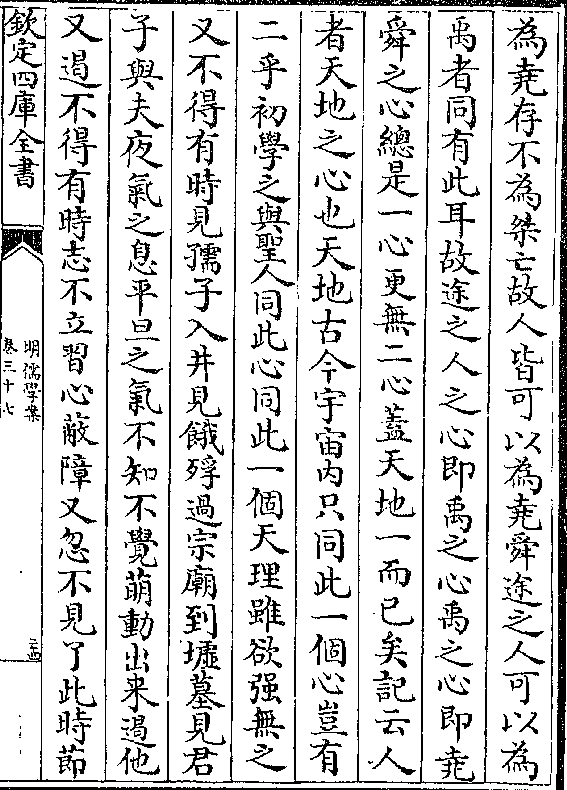 為堯存不為桀亡故人皆可以為堯舜途之人可以為
禹者同有此耳故途之人之心即禹之心禹之心即堯
舜之心總是一心更無二心蓋天地一而已矣記云人
者天地之心也天地古今宇宙内只同此一個心豈有
二乎初學之與聖人同此心同此一個天理雖欲强無之
又不得有時見孺子入井見餓殍過宗廟到墟墓見君
子與夫夜氣之息平旦之氣不知不覺萌動出来遏他
又遏不得有時志不立習心蔽障又忽不見了此時節
欽定四庫全書
明儒學案
卷三十七